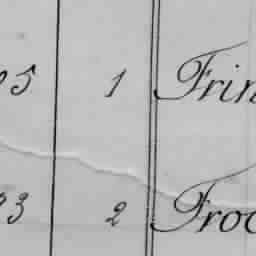 5 1 Frin
3 2 Froc